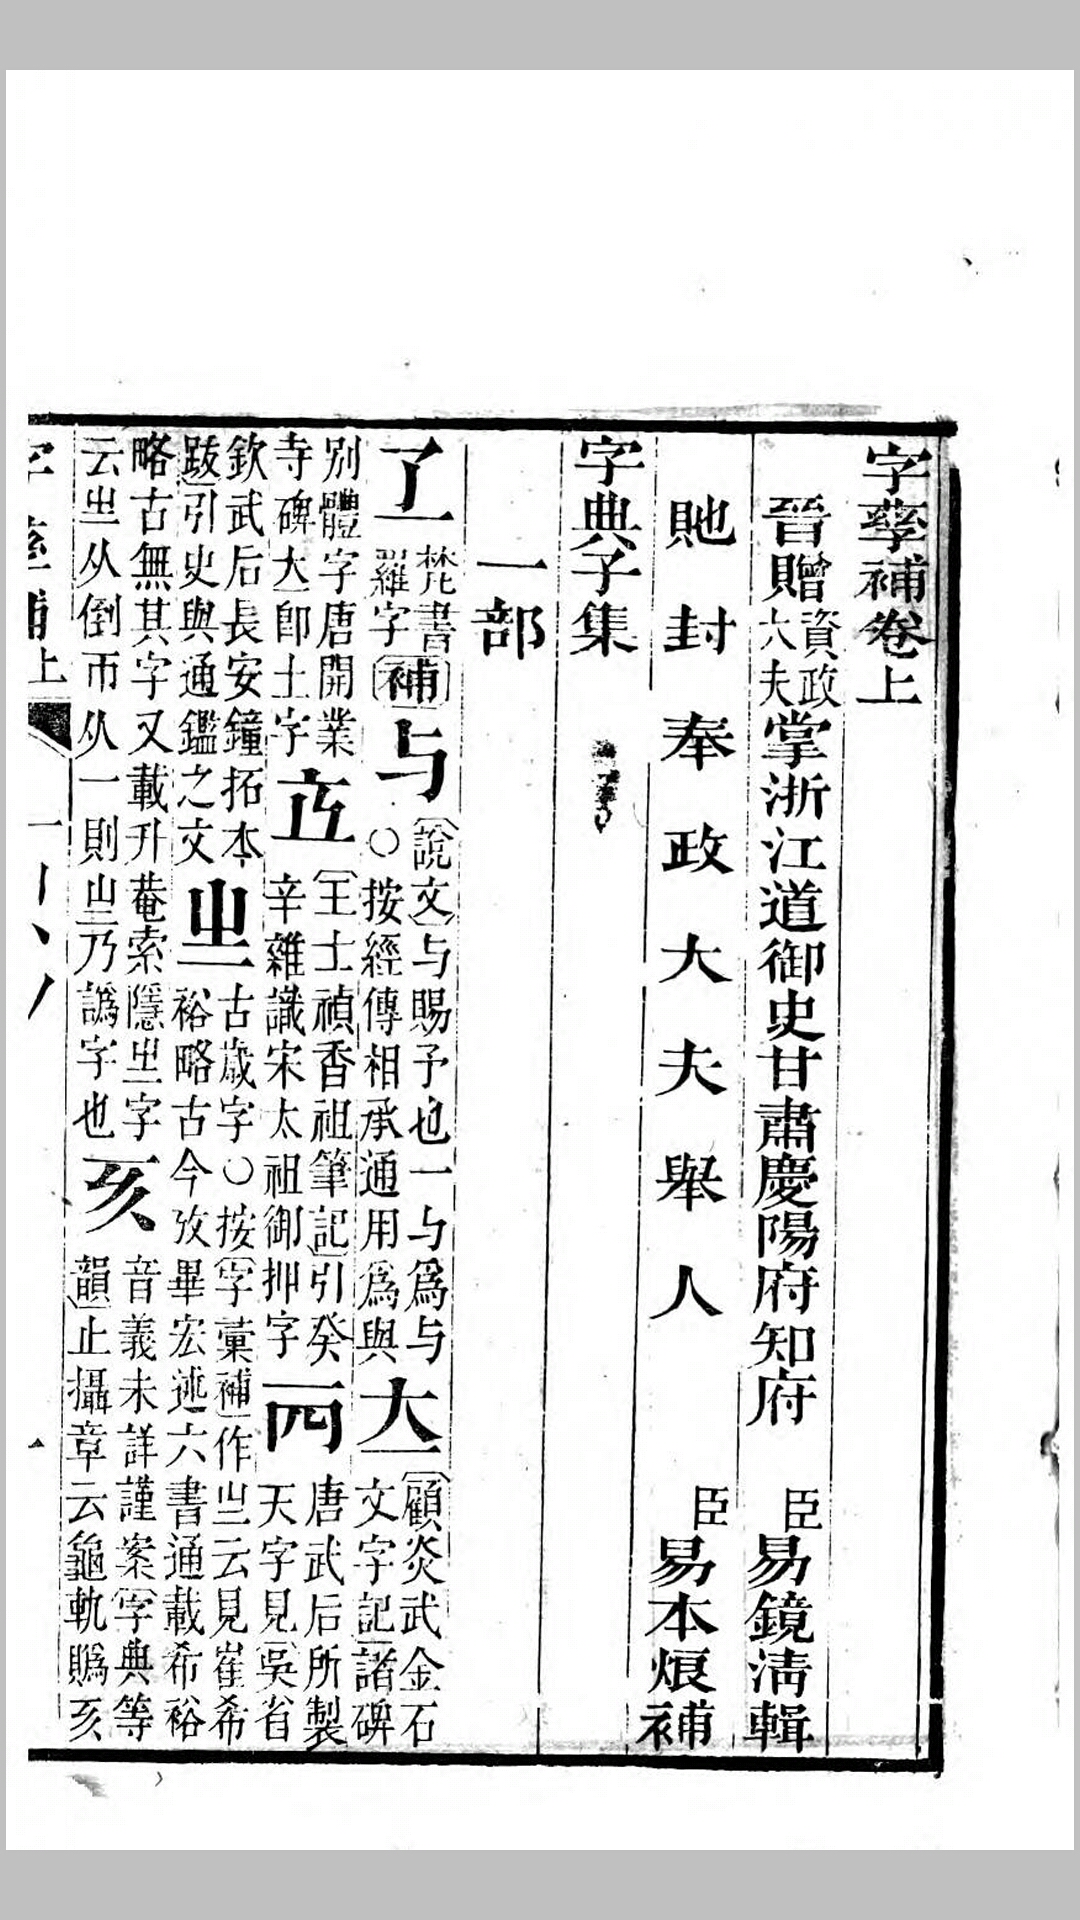 字孳補卷上
晉贈資政大夫掌浙江道御史甘肅慶陽府知府 臣易鏡清輯
貤封奉政大夫舉人 臣易本烺補
字典子集
一部
梵書羅字補与說文与賜予也一与爲与○按經傳相承通用爲與顧炎武金石文字記諸碑
別體字唐開業寺碑卽土字王士禎香祖筆記引癸辛雜識宋太祖御押字唐武后所製天字見吳省
欽武后長安鐘拓本跋引史與通鑑之文㞢古歲字○按字彙補作㞢云見崔希裕略古今攷畢宏述六書通載希裕
略古無其字又載升菴索隱㞢字云㞢从倒帀从一則㞢乃譌字也亥音義未詳謹案字典等韻止攝章云龜軌䞈亥